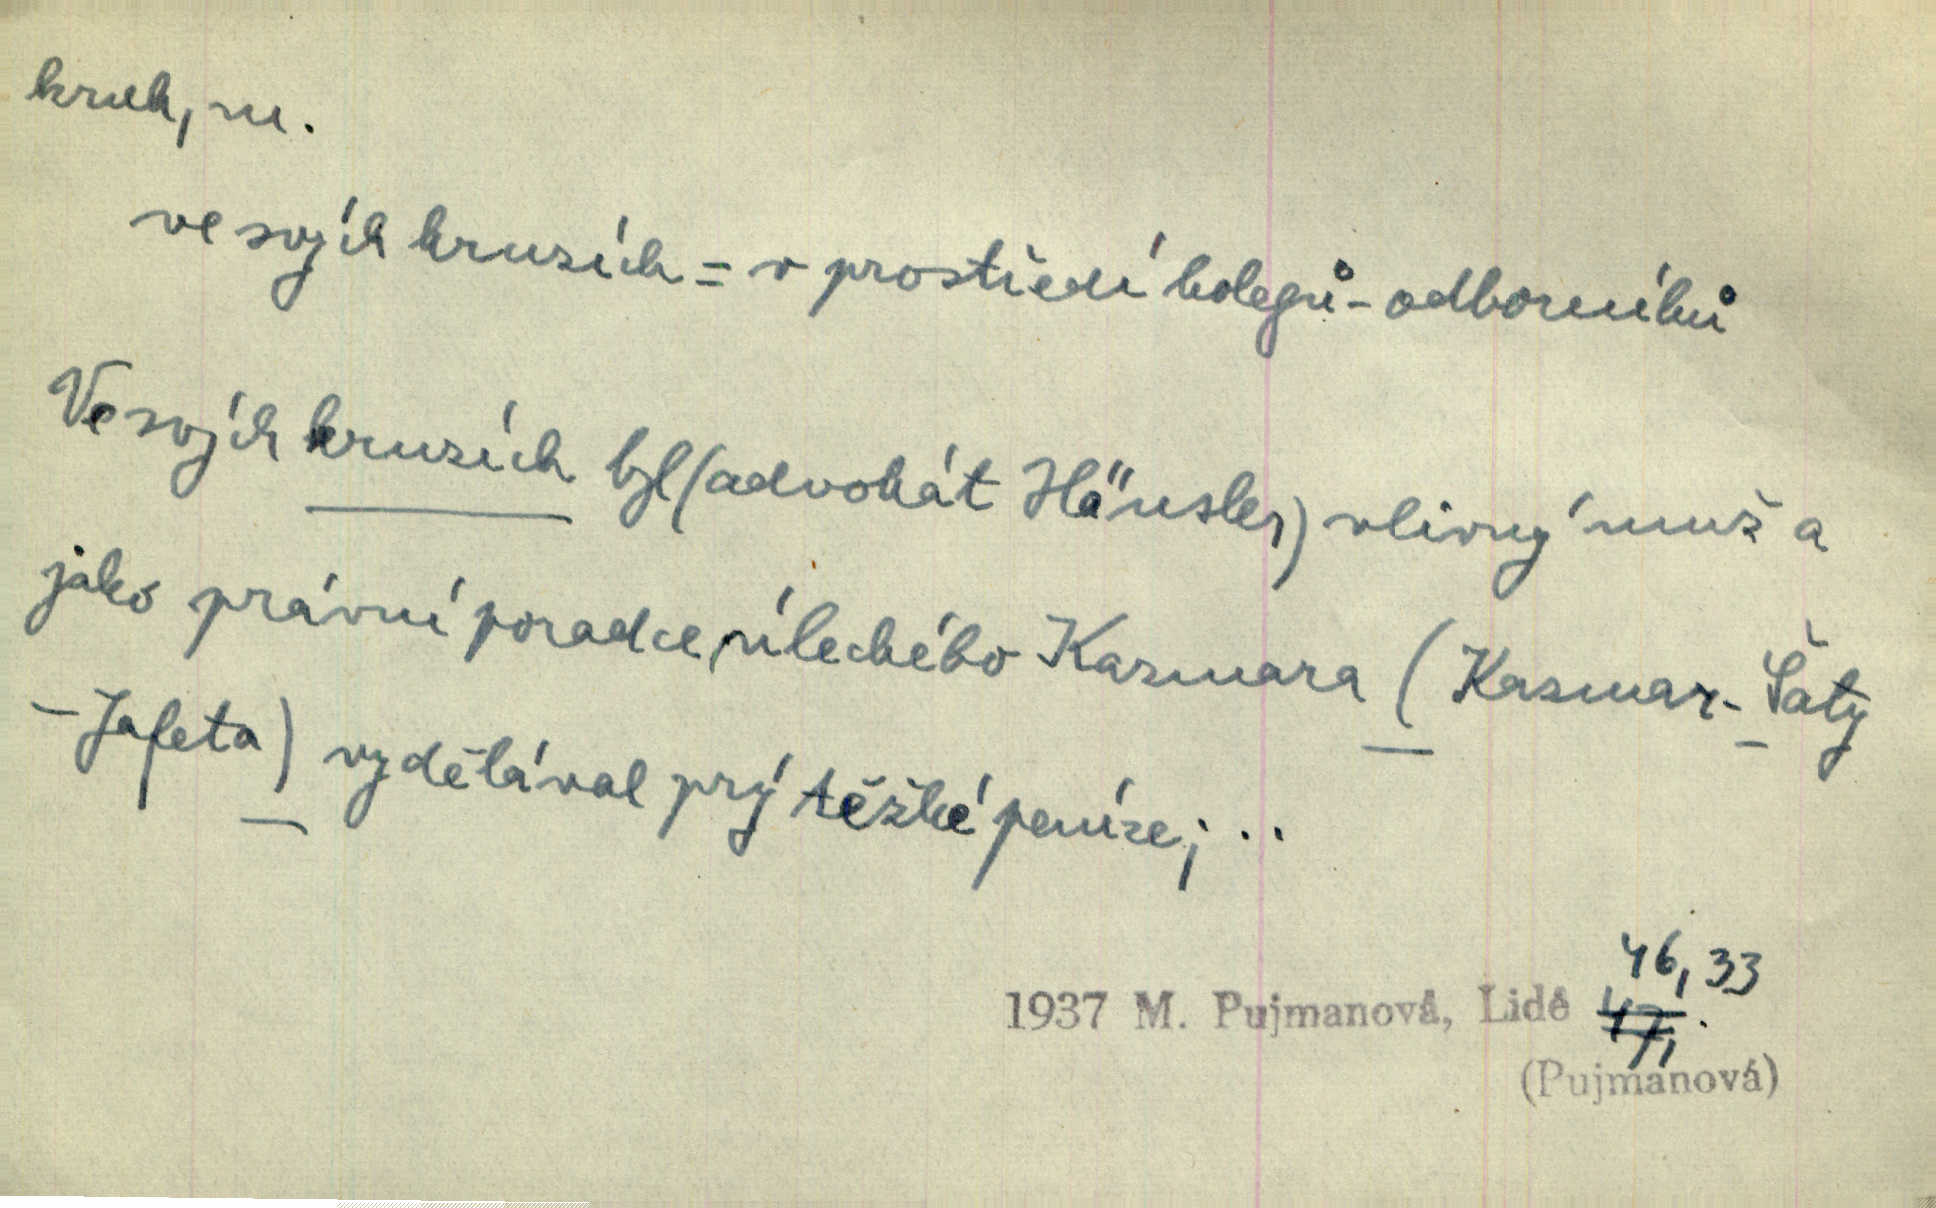 kruh, m.
ve svých kruzích = v prostředí kolegů - odborníků
Ve svých kruzích byl (advokát Häusler) vlivný muž a
jako právní poradce úleckého Kazmara (Kazmar - Šaty
- Jafeta) vydělával prý těžké peníze; ..
46, 33
1937 M. Pujmanová, Lidé 47, .
(Pujmanová)